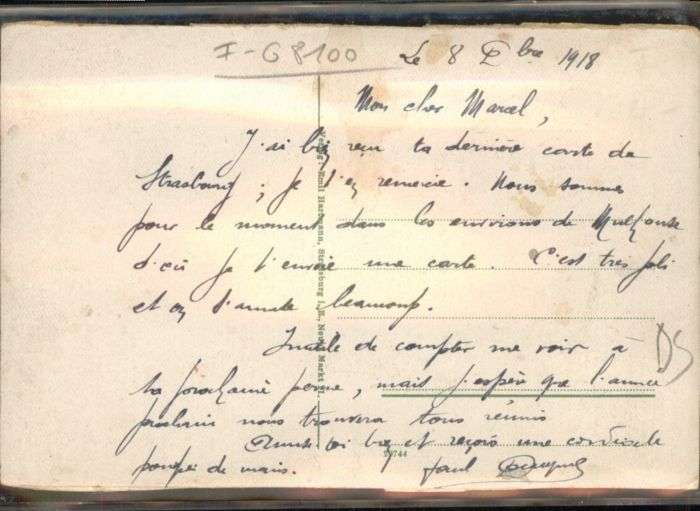 I-68100
Le 8 Xbre 1918
Mon cher Marcel,
J'ai bien reçu ta dernière carte de
Strasbourg ; je t'en remercie. Nous sommes
pour le moment dans les environs de Mulhouse
d'où je t'envoie une carte. C'est très joli
et on s'amuse beaucoup.
Inutile de compter me voir à
ta prochaine perme, mais j'espère que l'année
prochaine nous trouvera tous réunis
Amuse toi bien et reçois une cordiale
poignée de mains. Paul
DS
Verlag: Emil Hartmann, Strassburg i./E., Neuer Markt 1.
79744